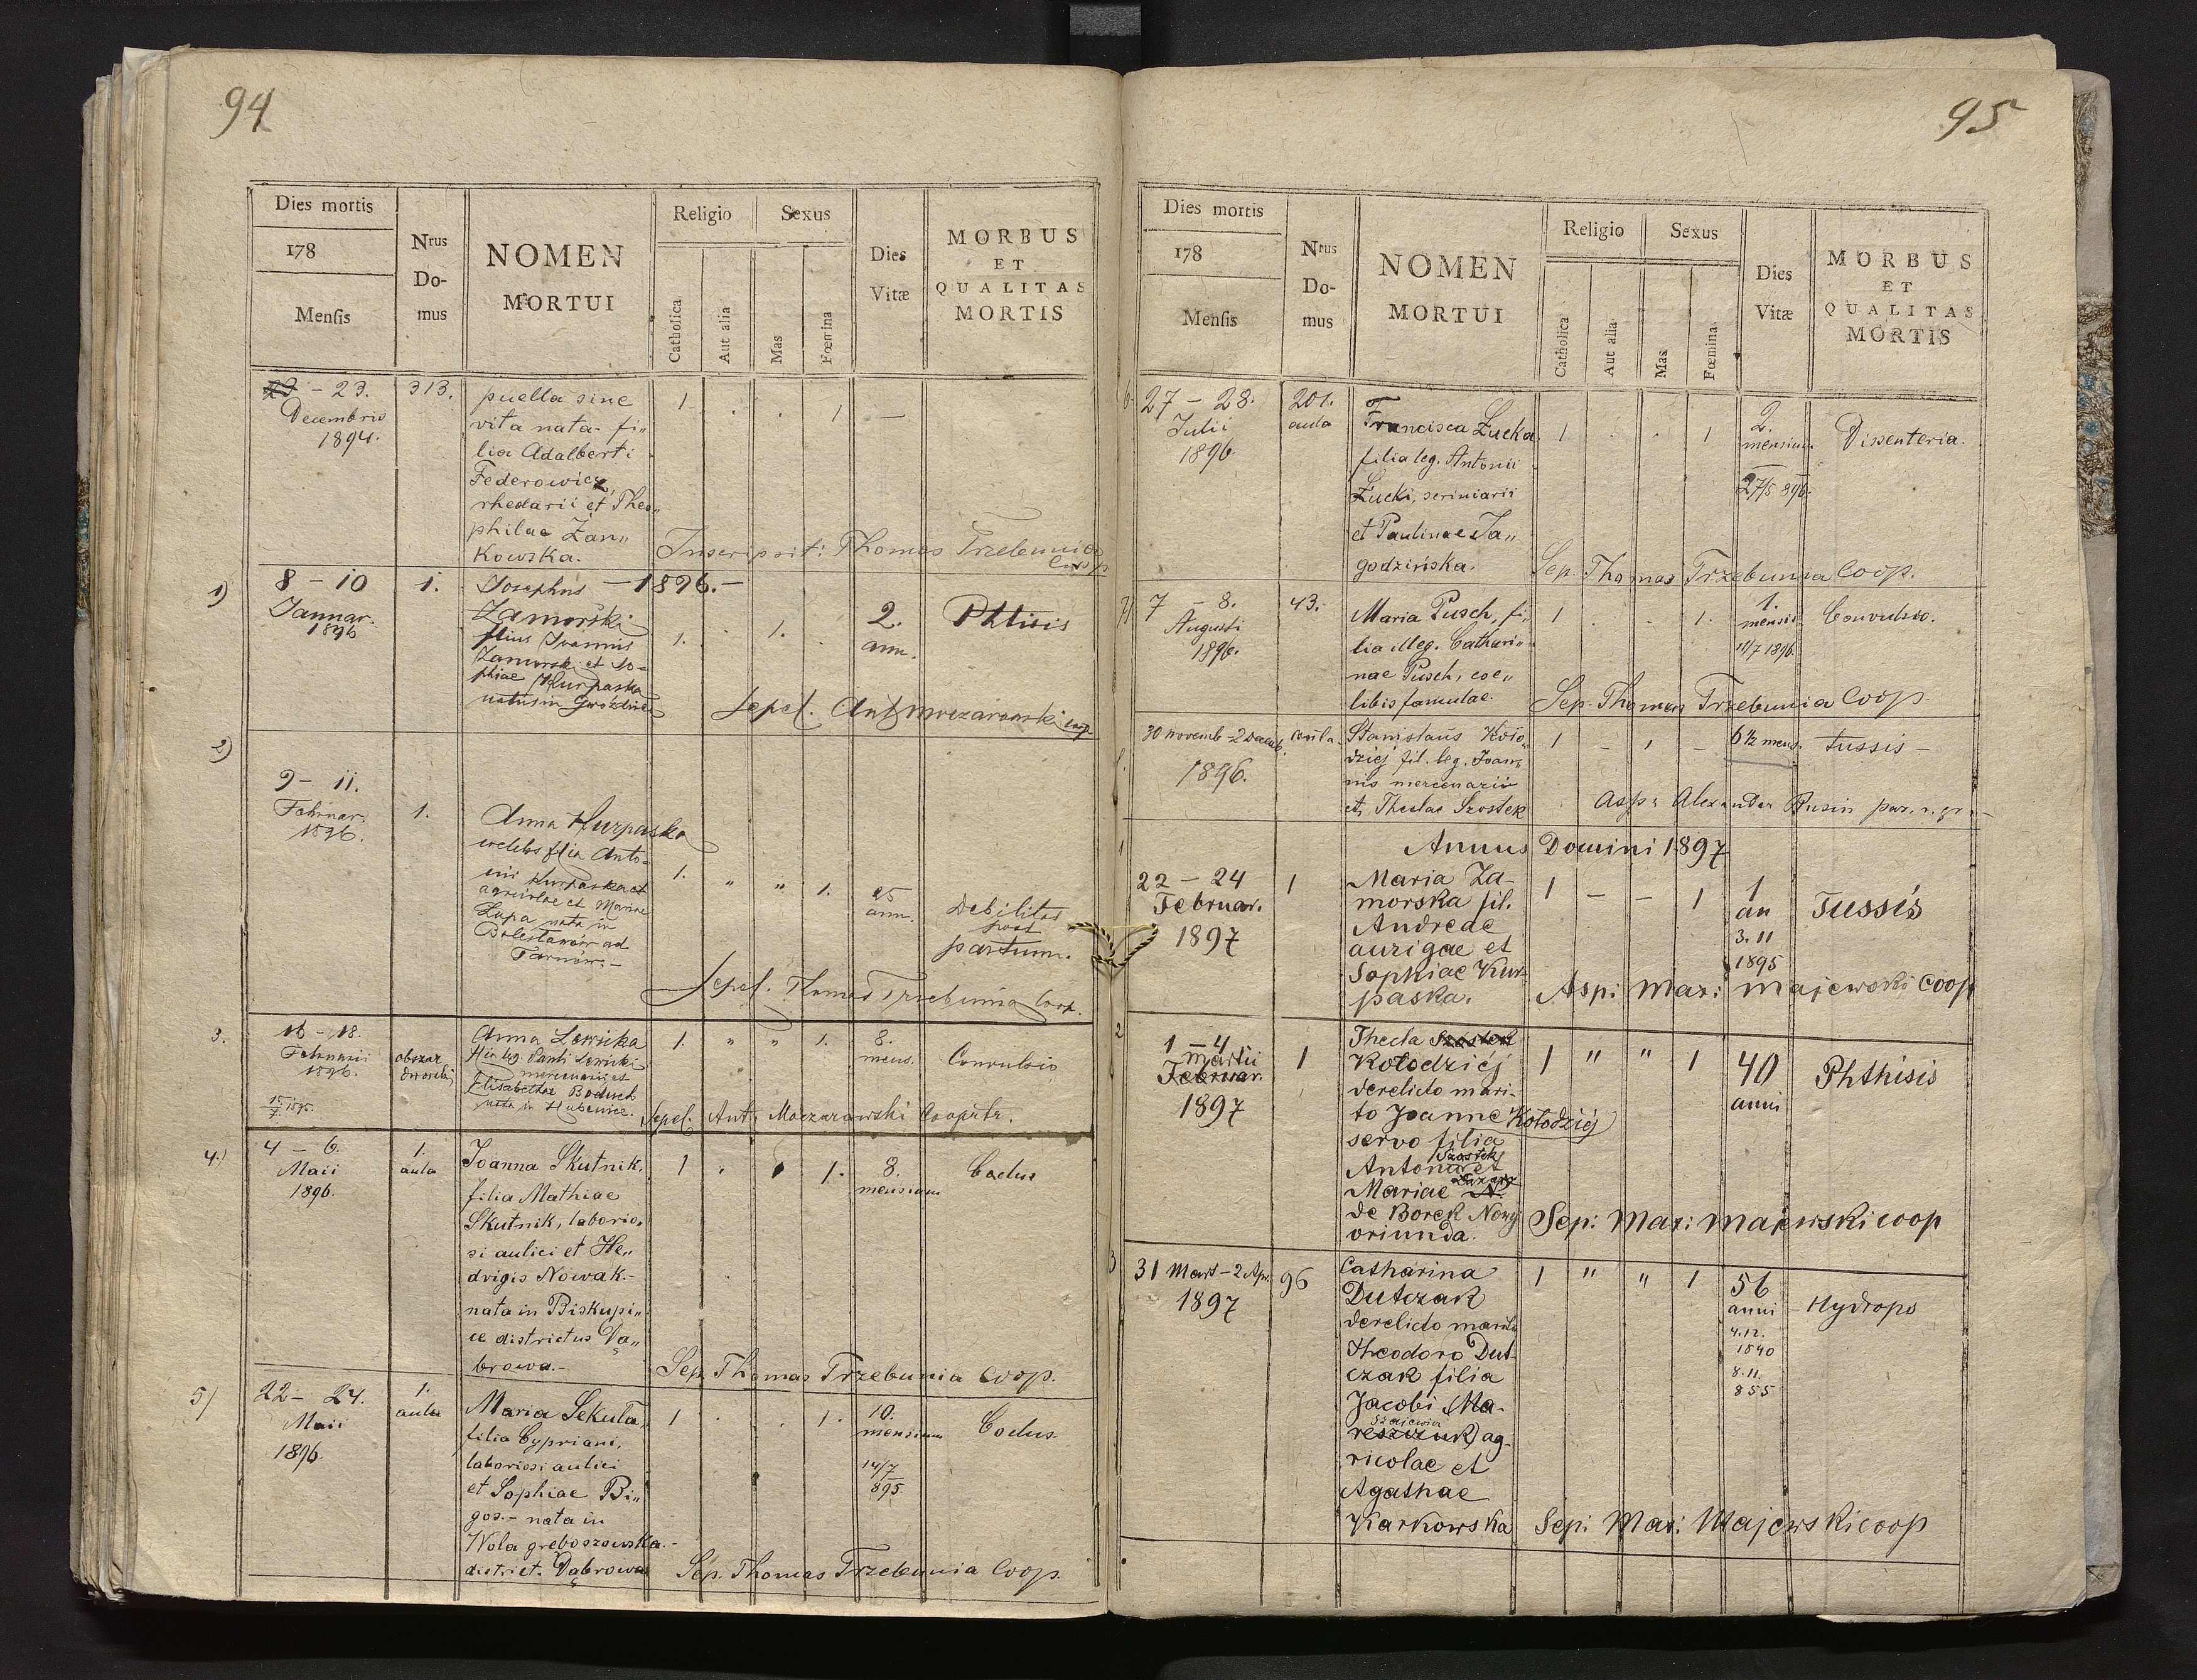 94
Dies mortis
178
Mensis
Nrus
Do-
mus
NOMEN
MORTUI
Religio
Catholica
Aut alia
Sexus
Mas
Fœmina
Dies
Vitæ
MORBUS
ET
QUALITAS
MORTIS
23 - 23.
Decembris
1894.
313.
puella sine
vita nata - fi„
lia Adalberti
Federowicz,
rhedarii et Theo„
philae Żan„
kowska.
1
.
.
1
—
Inscripsit: Thomas Trzebunia
Coop
1)
8 - 10
Januar.
1896
1.
— 1896. —
Josephus
Zamorski
filius Joannis
Zamorski et So-
phiae Kurpaska
natus in
1.
.
1.
.
2.
ann.
Phtisis
Sepel. Ant Moczarowski coop
2)
9 - 11.
Februar.
1896.
1.
Anna Kurpaska
coelebs filia Anto-
nii Kurpaska et
agricolae et Mariae
Łupa nata in
Bolesławów ad
Tarnów. -
1.
"
"
1.
25
ann.
Debilitas
post
partum.
Sepel. Thomas Trzebunia Coop.
3.
16 - 18.
Februarii
1896.
15/7 1895.
obszar
dworski
Anna Lewicka
filia leg. Pauli Lewicki
mercenarii et
Elisabethae Boduch
nata in Hubenice.
1.
"
"
1.
8.
mens.
Convulsio
Sepel. Ant. Moczarowski Cooprtr.
4.)
4 - 6.
Maii
1896.
1.
aula
Joanna Skutnik,
filia Mathiae
Skutnik, laborio„
si aulici et He„
dvigis Nowak.-
nata in Biskupi„
ce districtus Dą„
browa.-
1
.
1.
8.
mensium
Coelus
Sep. Thomas Trzebunia Coop.
5)
22 - 24.
Maii
1896.
1.
aula
Maria Sekuła,
filia Cypriani,
laboriosi aulici
et Sophiae Bi„
gos.- nata in
Wola greboszowska.-
district. Dąbrowa
1
.
.
1.
10.
mensium
14/7
895.
Coelus
Sep. Thomas Trzebunia Coop.
95
Dies mortis
178
Mensis
Nrus
Do-
mus
NOMEN
MORTUI
Religio
Catholica
Aut alia
Sexus
Mas
Fœmina
Dies
Vitæ
MORBUS
ET
QUALITAS
MORTIS
6.
27 - 28.
Julii
1896.
201.
aula
Francisca Żucka,
filia leg. Antonii
Żucki, scriniarii
et Paulinae Ja„
godzińska.
1
.
.
1
2.
mensium
27/5 896.
Dissenteria.
Sep. Thomas Trzebunia Coop.
7)
7 - 8.
Augusti
1896.
43.
Maria Pusch, fi„
lia illeg. Cathari„
nae Pusch, coe„
libis famulae.
1
.
.
1.
1.
mensis
11/7 1896.
Convulsio.
Sep. Thomas Trzebunia Coop.
30 novemb - 2 Decemb.
1896.
Stanislaus Koło„
dziej fil. leg. Joan„
nis mercenarii
et Theclae Szostek
1
-
1
-
6 1/2 mens.
Tussis -
Asp: Alexander Busin par. r. gr.
Annus Domini 1897
1
22 - 24
Februar.
1897
1
Maria Za-
morska fil.
Andreae
aurigae et
Sophiae Kur-
paska.
1
-
-
1
1
an
3.11
1895
Tussis
Asp: Mar: Majewski Coop
2
1 - 4
Martii
Februar.
1897
1
Thecla Szostek
Kołodziéj
derelicto mari-
to Joanne Kołodziéj
servo filia
Szostek
Antonii et
Mariae N.
de Borek Nowy
oriunda.
1
"
"
1
40
anni
Phthisis
Sep: Mar: Majewski coop
3
31 Mart - 2 Apr.
1897
96
Catharina
Dutczak
derelicto marito
Theodoro Dut-
czak filia
Jacobi Ma-
reszczuk ag-
ricolae et
Agathae
Karkowska
1
"
"
1
56
anni
4.12.
1840
8.11.
855
Hydrops
Sep: Mar: Majewski coop